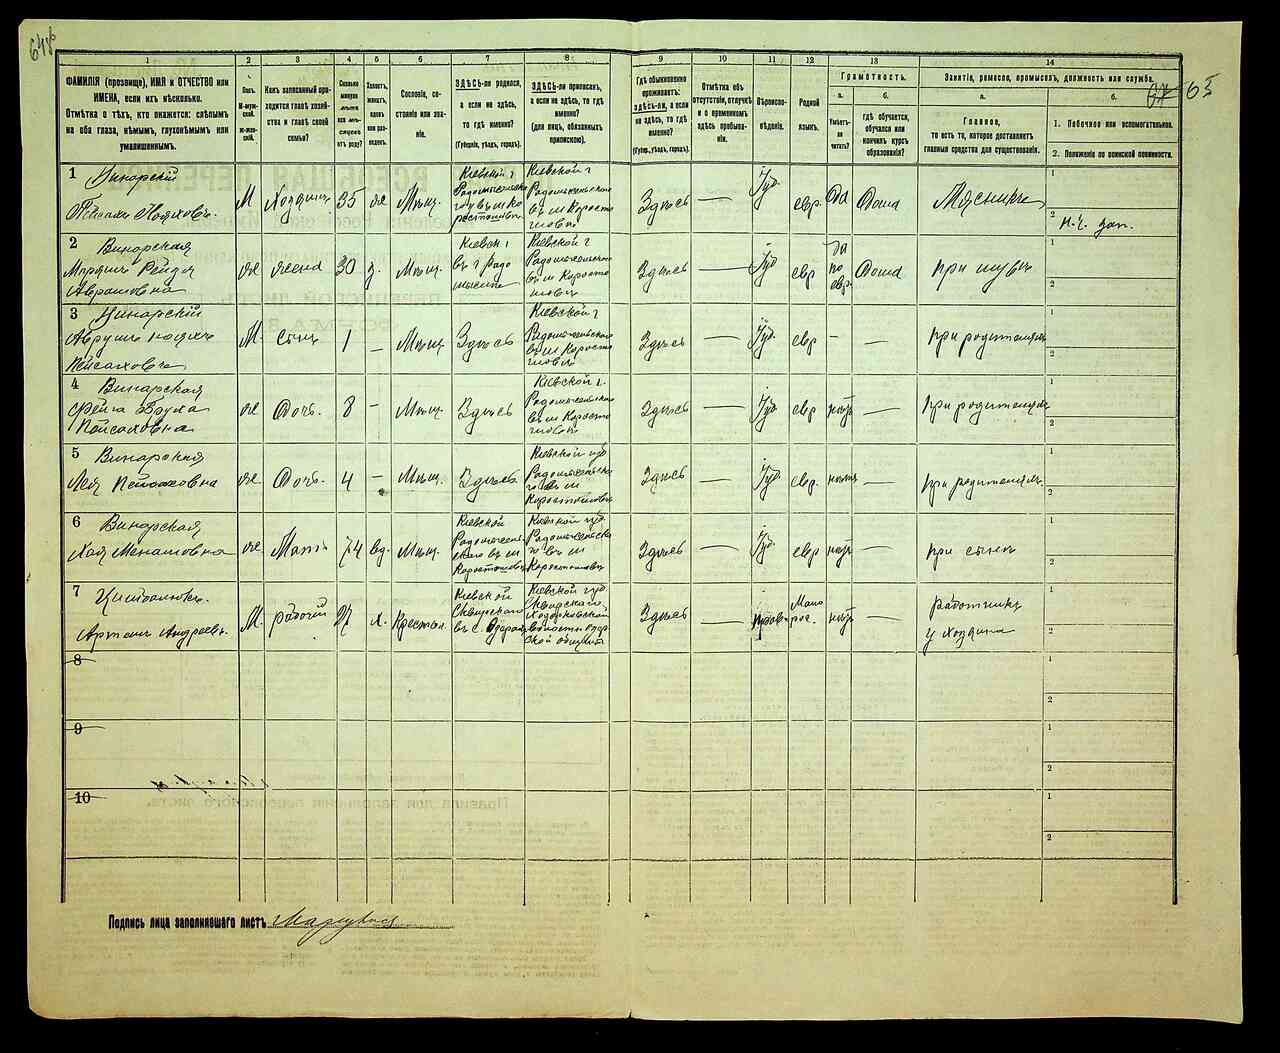 64об
65
1 2 3 4 5 6 7 8 9 10 11 12 13 14
ФАМИЛІЯ (прозвище), ИМЯ и ОТЧЕСТВО или
ИМЕНА, если ихъ нѣсколько.
Отмѣтка о тѣхъ, кто окажется: слѣпымъ
на оба глаза, нѣмымъ, глухонѣмымъ или
умалишеннымъ.
Полъ.
М-муж-
ской.
ж-жен-
скій.
Какъ записанный при-
ходится главѣ хозяй-
ства и главѣ своей
семьи?
Сколько
минуло
лѣтъ
или мѣ-
сяцевъ
отъ роду?
Холостъ,
женатъ,
вдовъ
или раз-
веденъ.
Сословіе, со-
стояніе или зва-
ніе.
ЗДѢСЬ-ли родился,
а если не здѣсь,
то гдѣ именно?
(Губернія, уѣздъ, городъ).
ЗДѢСЬ-ли приписанъ,
а если не здѣсь, то гдѣ
именно?
(для лицъ, обязанныхъ
припискою).
Гдѣ обыкновенно
проживаетъ:
здѣсь-ли, а если
не здѣсь, то гдѣ
именно?
(Губер., уѣздъ, городъ).
Отмѣтка объ
отсутствіи, отлучкѣ
и о временномъ
здѣсь пребыва-
ніи.
Вѣроиспо-
вѣданіе.
Родной
языкъ.
Грамотность.
а.
Умѣетъ-
ли
читать?
б.
гдѣ обучается,
обучался или
кончилъ курсъ
образованія?
Занятіе, ремесло, промыселъ, должность или служба.
а.
Главное,
то есть то, которое доставляетъ
главныя средства для существованія.
б.
1. Побочное или вспомогательное.
2. Положеніе по воинской повинности.
1 Винарскій
Пейсахъ Нояховъ.
М Хозяинъ 35 же Мѣщ.
Кіевской г
Кіевской г
Радомысльскаго
въ м Коросто
шовъ
Здѣсь — Іуд. евр. Да Дома Мясникъ
1
2 н.ч. зап.
2 Винарская
Авраамовна
же жена 30 з. Мѣщ.
Кіевск г
въ г Радо
мыслѣ
Кіевской г
Радомысльскаго
въ м Коросто
шовъ
Здѣсь — Іуд евр Да
по
евр. Дома при мужѣ
1
2
3 Винарскій
Пейсаховъ
М. Сынъ 1 — Мѣщ Здѣсь
Кіевской г
Радомысльскаго
въ м Коросто
шовъ
Здѣсь — Іуд. евр — — при родителяхъ
1
2
4 Винарская
Фейга Бруха
Пейсаховна
же Дочь. 8 — Мѣщ Здѣсь
Кіевской г.
Радомысльскаго
въ м Коросто
шовъ
Здѣсь — Іуд. евр нѣтъ — при родителяхъ
1
2
5 Винарская
Лея Пейсаховна
же. Дочь. 4 — Мѣщ. Здѣсь
Кіевской губ
Радомысльска
го въ м
Коростышовъ
Здѣсь — Іуд. евр. нѣтъ — при родителяхъ
1
2
6 Винарская
Хая Менашовна
же. Мать 74 вд. Мѣщ.
Кіевской
Радомысль
скаго въ м
Коростышовъ
Кіевской губ.
Радомысльска
го въ м
Коростышовъ
Здѣсь — Іуд. евр нѣтъ — при сынѣ
1
2
7
Артемъ Андреевъ.
М. рабочій 27 х. Крестьян.
Кіевской
Сквирскаго
Кіевской губ.
Сквирскаго
Ходорковской
Здѣсь — Правос Мало
рос. нѣтъ — работникъ
у хозяина
1
2
8
1
2
9
1
2
10
1
2
Подпись лица заполнявшаго листъ